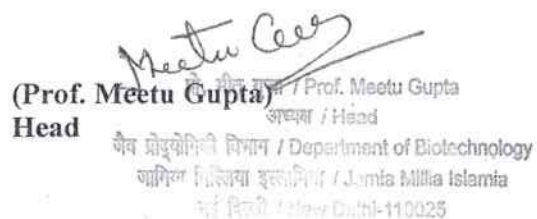 Meetu
(Prof. Meetu Gupta)
Head
प्रो. मीतू गुप्ता / Prof. Meetu Gupta
अध्यक्ष / Head
जैव प्रौद्योगिकी विभाग / Department of Biotechnology
जामिया मिल्लिया इस्लामिया / Jamia Millia Islamia
नई दिल्ली / New Delhi-110025